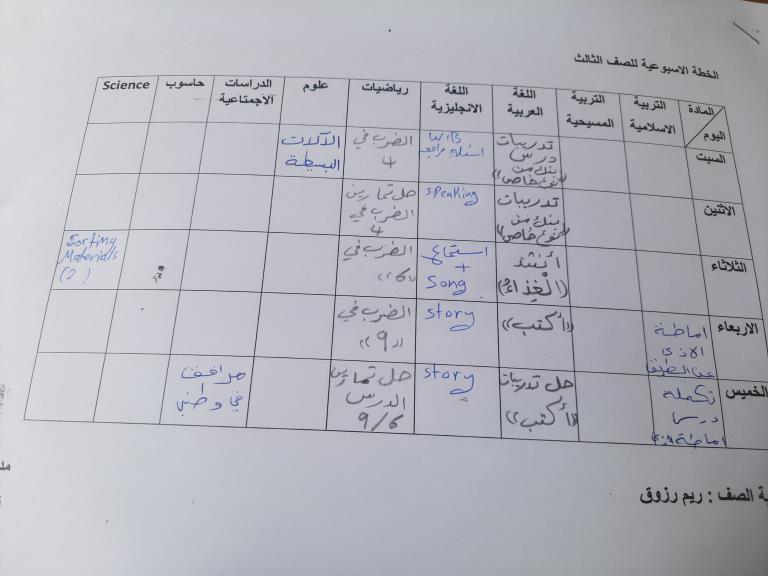 الخطة الاسبوعية للصف الثالث
المادة
اليوم
التربية
الاسلامية
التربية
المسيحية
اللغة
العربية
اللغة
الانجليزية
رياضيات
علوم
الدراسات
الاجتماعية
حاسوب
Science
السبت
تدريبات
درس
بنك من
نوع خاص))
W.B
اسئلة
الضرب في
4
الآلات
البسيطة
الاثنين
تدريبات
بنك من
نوع خاص))
speaking
حل تمارين
الضرب في
4
الثلاثاء
أنشد
(الغذاء)
استماع
+
Song
الضرب في
"6"
Sorting
Materials
(2)
الاربعاء
اماطة
الاذى
عن الطريق
((أكتب))
story
الضرب في
"9"
الخميس
تكملة
درس
اماطة
حل تدريبات
((أكتب))
story
حل تمارين
الدرس
9/6
مرافق
في وطني
ية الصف : ريم رزوق